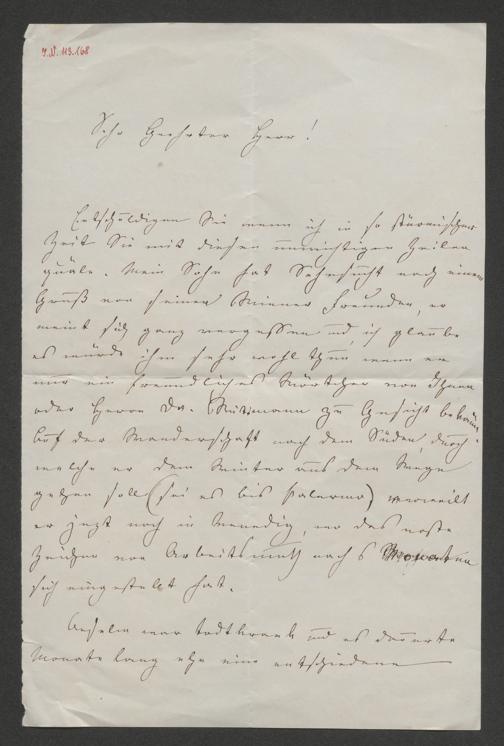 I.N. 113.168
Sehr Geehrter Herr!
Entschuldigen Sie wenn ich in so stürmischer
Zeit Sie mit diesen unwichtigen Zeilen
quäle. Mein Sohn hat Sehnsucht nach einem
Gruß von seinen Wiener Freunden, er
meint sich ganz vergessen und ich glaube
es würde ihm sehr wohl thun wenn er
nur ein freundliches Wörtchen von Ihnen
oder Herrn Dr. zu Gesicht bekäme.
Auf der Wanderschaft nach dem Süden durch
welche er dem Winter aus dem Wege
gehen soll (sei es bis Palermo) verweilt
er jezt noch in Venedig, wo das erste
Zeichen von Arbeitsmuth nach 6 Monaten
sich eingestellt hat.
Anselm war todtkrank und es dauerte
Monate lang ehe eine entschiedene